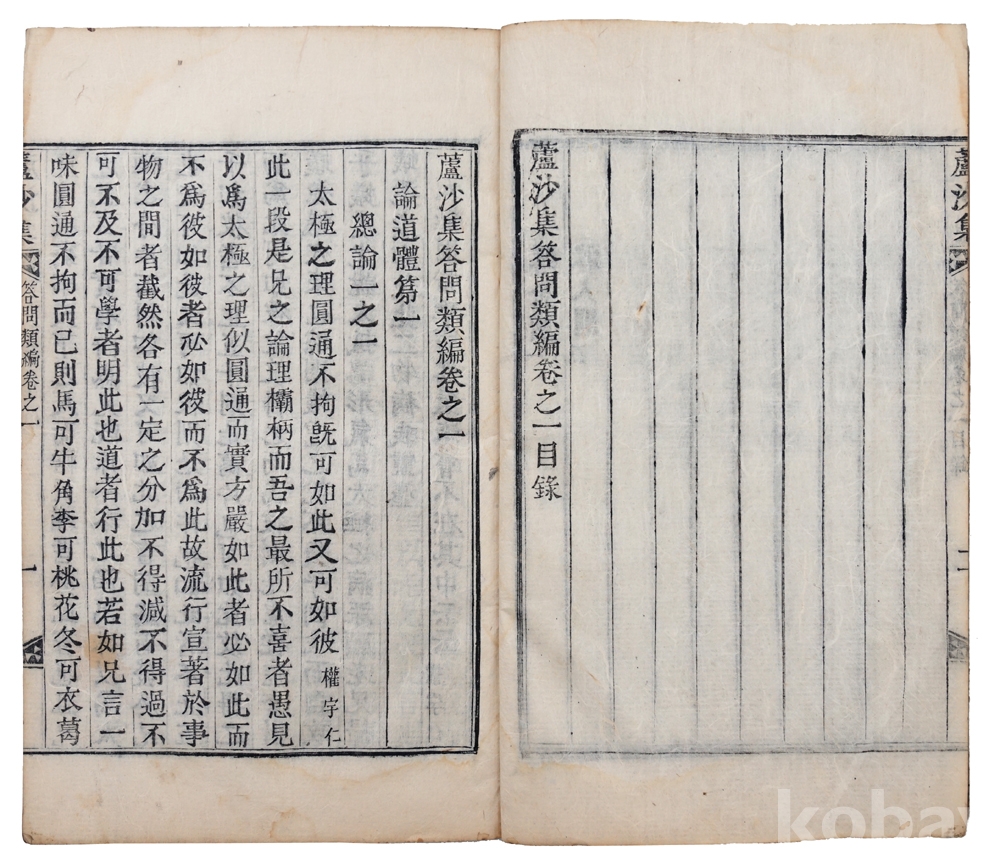 蘆沙集
二
蘆沙集答問類編卷之一目錄
蘆沙集答問類編卷之一
論道體第一
總論一之一
太極之理圓通不拘旣可如此又可如彼 權宇仁
此一段是兄之論理欛柄而吾之最所不喜者愚見
以爲太極之理似圓通而實方嚴如此者必如此而
不爲彼如彼者必如彼而不爲此故流行宣著於事
物之間者截然各有一定之分加不得減不得過不
可不及不可學者明此也道者行此也若如兄言一
味圓通不拘而已則馬可牛角李可桃花冬可衣葛
蘆沙集 答問類編卷之一 一
kobay